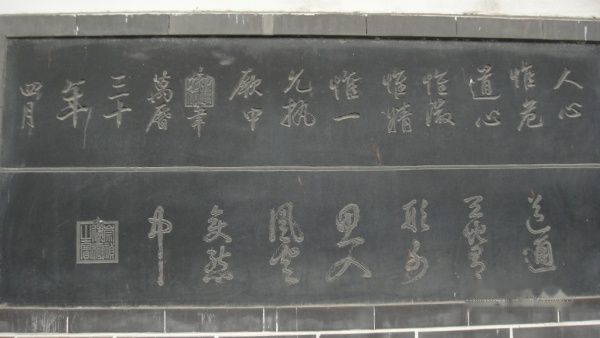 人心
惟危
道心
惟微
惟精
惟一
允執
厥中
御筆
萬曆
三十
年
四月
道通
天地有
形外
思入
風雲
變態
中